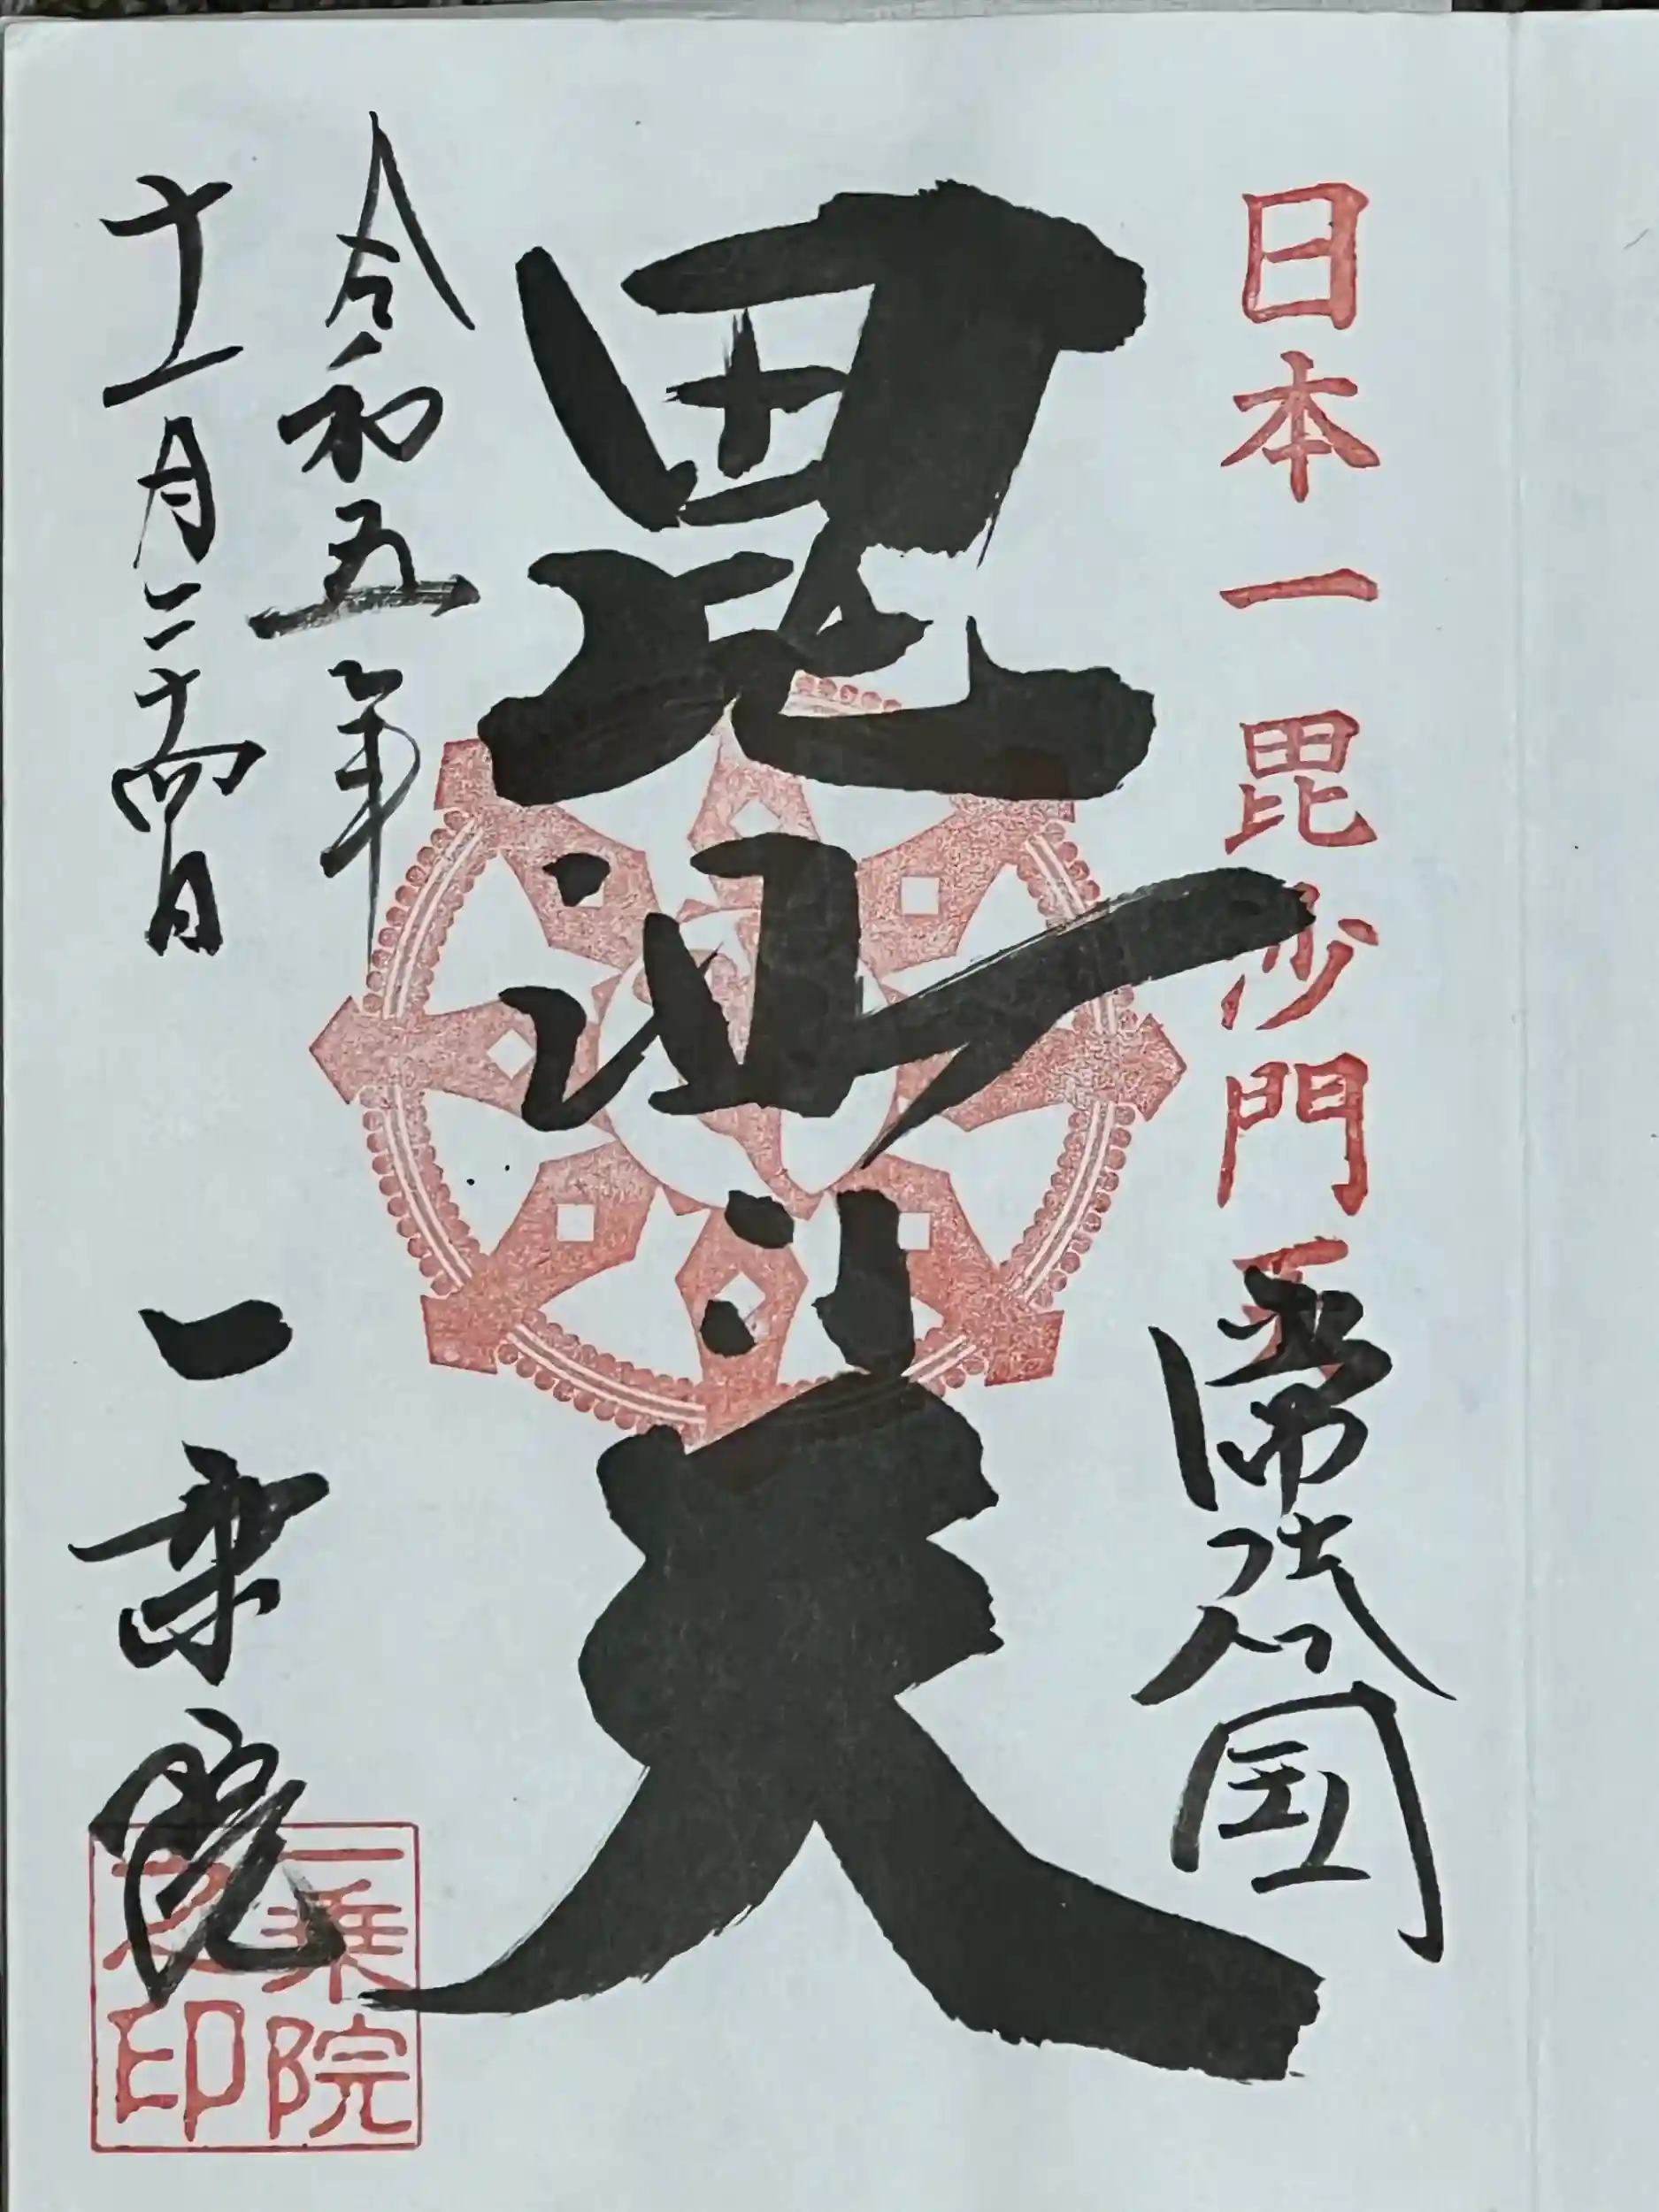 日本一毘沙門天
常陸国
毘沙門天
令和五年
十一月二十四日
一乗院
一乗院
印